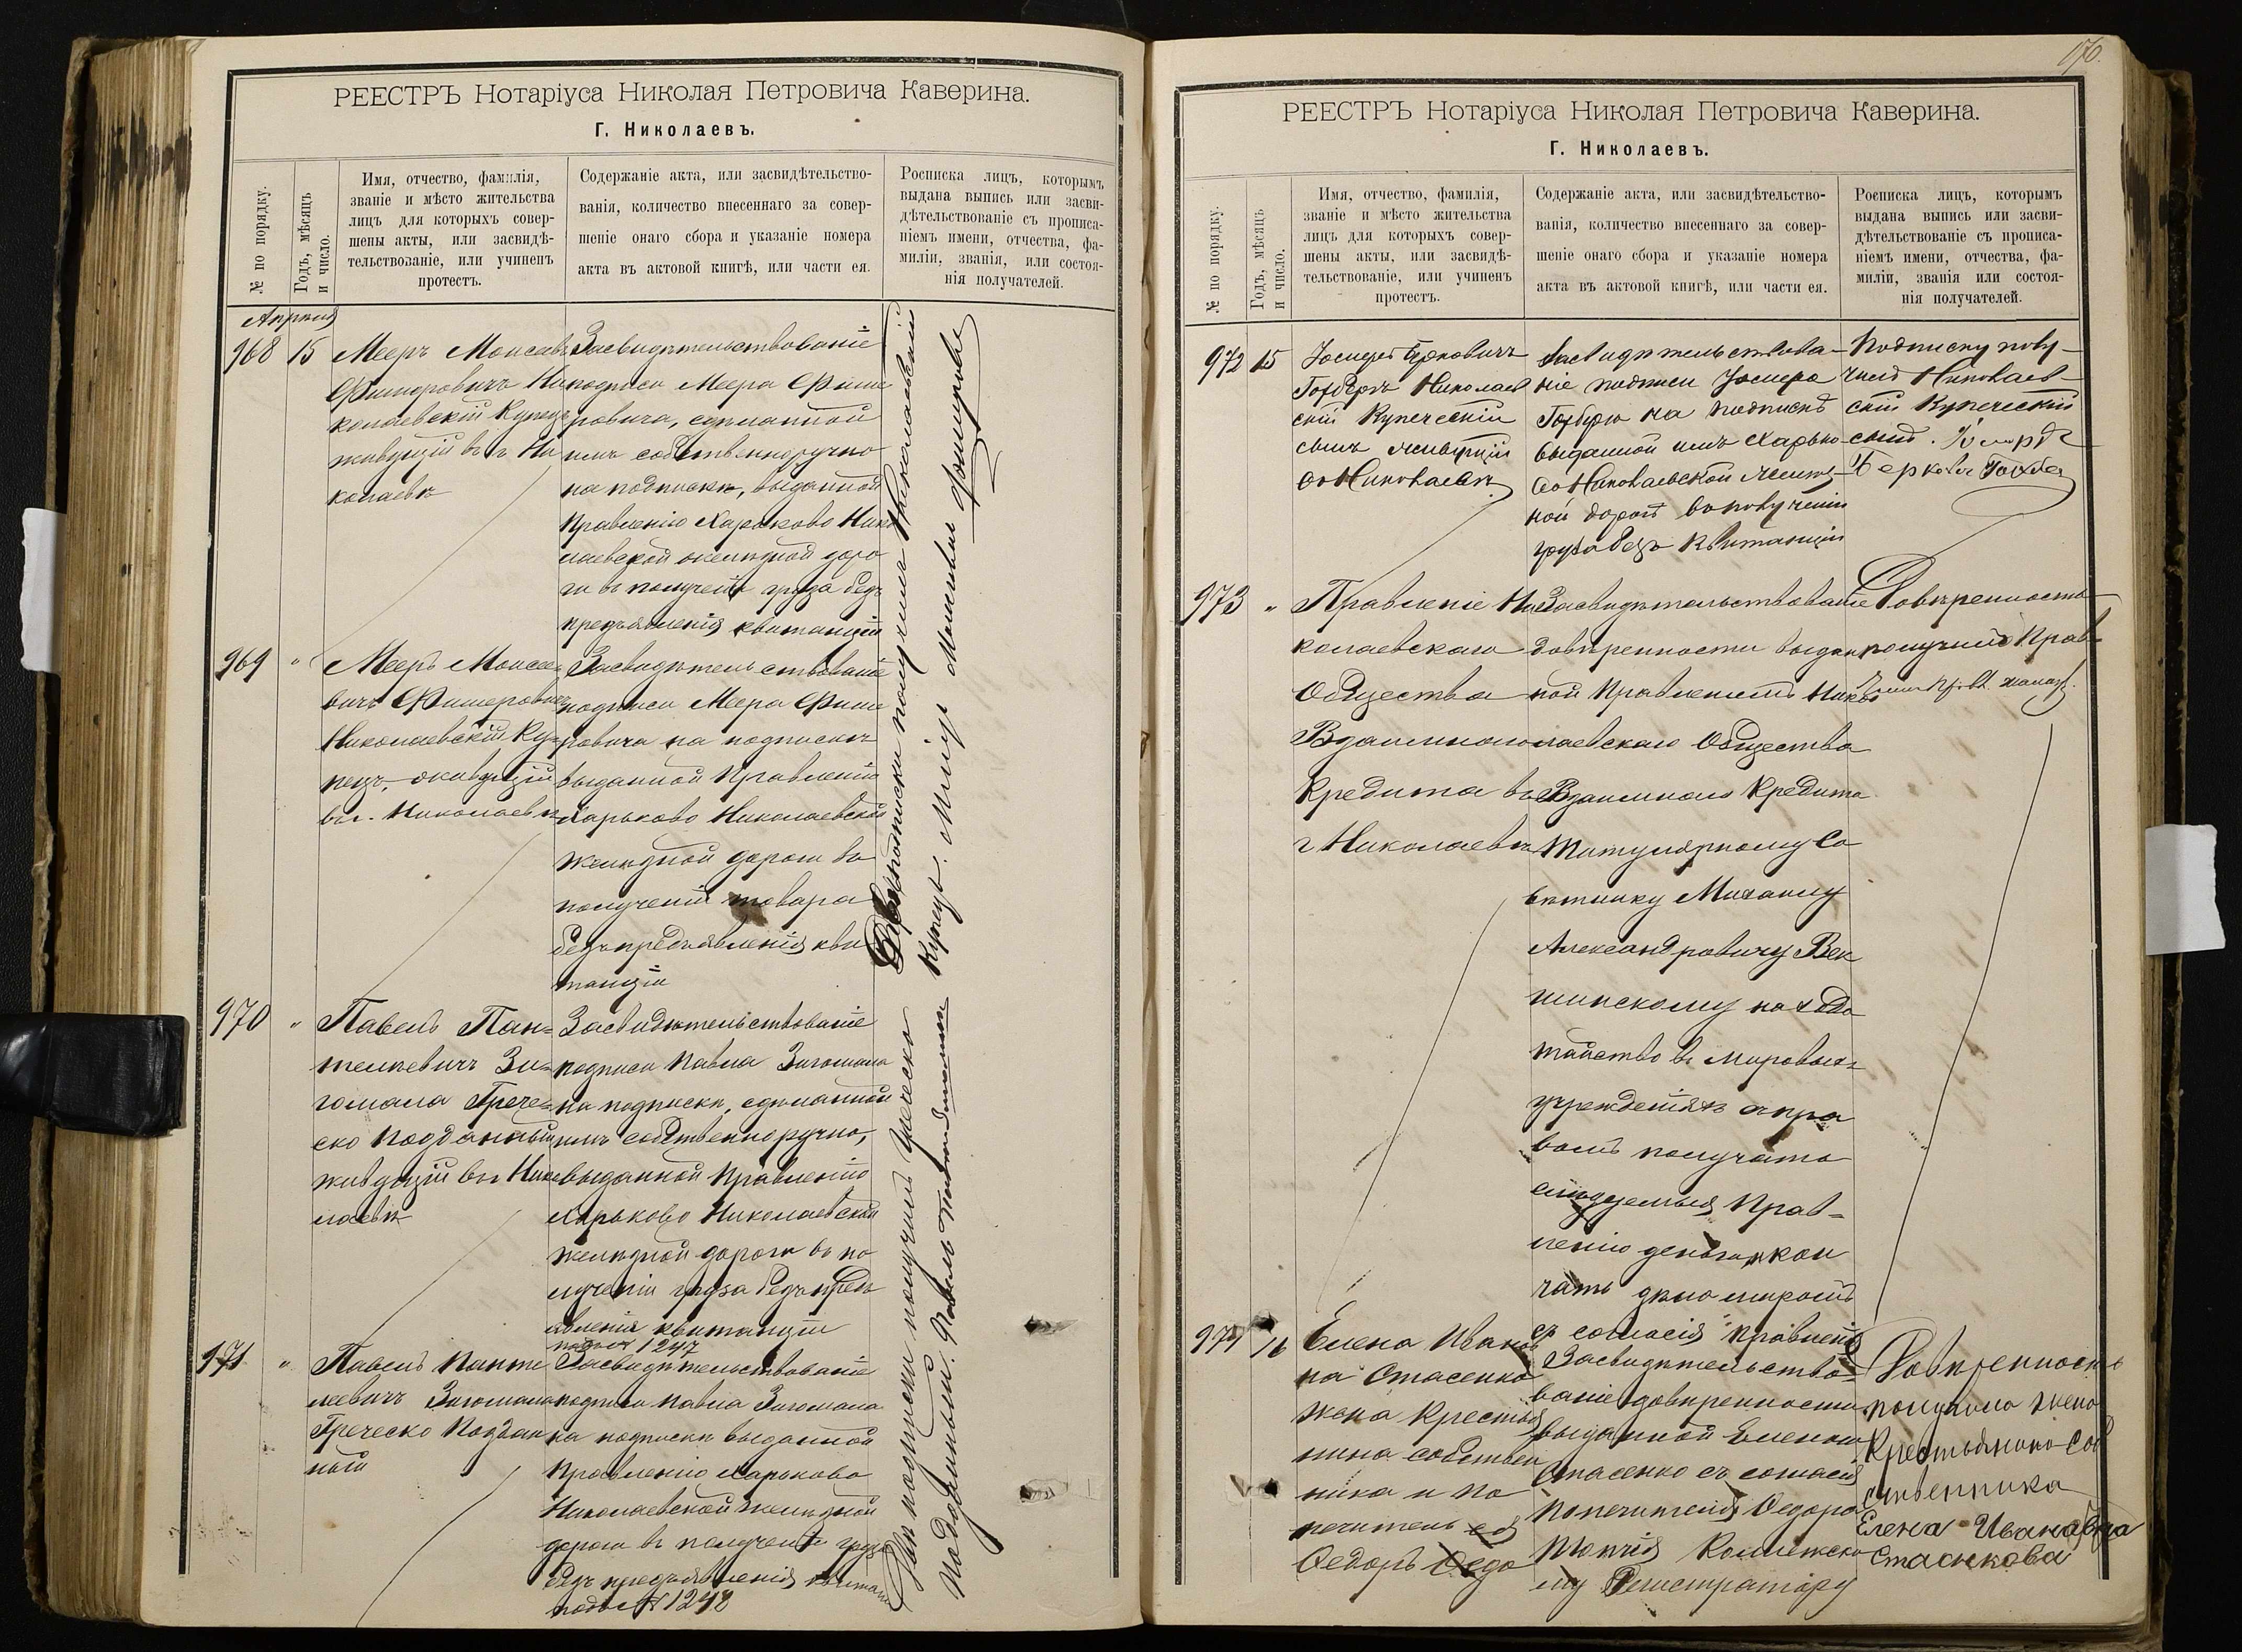 РЕЕСТРЪ Нотаріуса Николая Петровича Каверина.
Г. Николаевъ.
№ по порядку.
Годъ, мѣсяцъ
и число.
Имя, отчество, фамилія,
званіе и мѣсто жительства
лицъ для которыхъ совер-
шены акты, или засвидѣ-
тельствованіе, или учиненъ
протестъ.
Содержаніе акта, или засвидѣтельство-
ванія, количество внесеннаго за совер-
шеніе онаго сбора и указаніе номера
акта въ актовой книгѣ, или части ея.
Росписка лицъ, которымъ
выдана выпись или засви-
дѣтельствованіе съ прописа-
ніемъ имени, отчества, фа-
миліи, званія, или состоя-
нія получателей.
Апрѣля
968 15
Мееръ Моисеев
Фишеровичъ Ни
колаевскій Купецъ
живущій въ г Ни
колаевѣ
Засвидѣтельствованіе
подписи Меера Фише
ровича, сдѣланной
имъ собственноручно
на подпискѣ, выданной
Правленію Харьково Нико
лаевской желѣзной доро
ги въ полученіи груза безъ
предъявленія квитанціи
969 "
Мееръ Моисее
вичъ Фишеровичъ
Николаевскій Ку-
пецъ, живущій
въ г. Николаевѣ
Засвидѣтельствованіе
подписи Меера Фише
ровича на подпискѣ
выданной Правленію
Харьково Николаевской
желѣзной дороги въ
полученіи товара
безъ предъявленія кви
танціи
Двѣ подписки получилъ Николаевскій
Купецъ Мееръ Моисеевичъ Фишеровичъ
970 "
Павелъ Пан-
телеевичъ Зи-
гомала Грече-
ско подданный
живущій въ г Нико
лаевѣ
Засвидѣтельствованіе
подписи Павла Зигомала
на подпискѣ, сдѣланной
имъ собственноручно,
выданной Правленію
Харьково Николаевской
желѣзной дороги въ по
лученіи груза безъ предъ
явленія квитанціи
подъ № 1247
971 "
Павелъ Панте
леевичъ Зигомала
Греческо Поддан
ный
Засвидѣтельствованіе
подписи Павла Зигомала
на подпискѣ выданной
Правленію Харьково
Николаевской желѣзной
дороги въ полученіи груза
безъ предъявленія квитан
подъ № 1248
Двѣ подписки получилъ Греческо
подданный Павелъ
170.
РЕЕСТРЪ Нотаріуса Николая Петровича Каверина.
Г. Николаевъ.
№ по порядку.
Годъ, мѣсяцъ
и число.
Имя, отчество, фамилія,
званіе и мѣсто жительства
лицъ для которыхъ совер-
шены акты, или засвидѣ-
тельствованіе, или учиненъ
протестъ.
Содержаніе акта, или засвидѣтельство-
ванія, количество внесеннаго за совер-
шеніе онаго сбора и указаніе номера
акта въ актовой книгѣ, или части ея.
Росписка лицъ, которымъ
выдана выпись или засви-
дѣтельствованіе съ прописа-
ніемъ имени, отчества, фа-
миліи, званія или состоя-
нія получателей.
972 15
Берковичъ
Николаев
скій Купеческій
сынъ живущій
въ Николаевѣ
Засвидѣтельствова-
ніе подписи
на подпискѣ
выданной имъ Харько-
во Николаевской желѣз-
ной дорогѣ въ полученіи
груза безъ квитанціи
Подписку полу-
чилъ Николаев-
скій Купеческій
сынъ.
Беркови
973 "
Правленіе Ни
колаевскаго
Общества
Взаимнаго
Кредита въ
г Николаевѣ
Засвидѣтельствованіе
довѣренности выдан
ной Правленіемъ Нико
лаевскаго Общества
Взаимнаго Кредита
Титулярному Со
вѣтнику Михаилу
Александровичу Бек
шинскому на хода
тайство въ Мировыхъ
учрежденіяхъ съ пра
вомъ получать
слѣдуемыя Прав-
ленію деньги и кон
чать дѣло миромъ
съ согласія Правленія
Довѣренность
получилъ
974 16
Елена Иванов
на Стасенко
жена Крестья
нина собствен
ника и по
печитель ея
Ѳедоръ Ѳедо
Засвидѣтельство-
ваніе довѣренности
выданной Еленою
Стасенко съ согласія
попечителя Ѳедора
Коллежско
му Регистратору
Довѣренность
получила жена
Крестьянина Соб
ственника
Елена Ивановна
Стасюкова